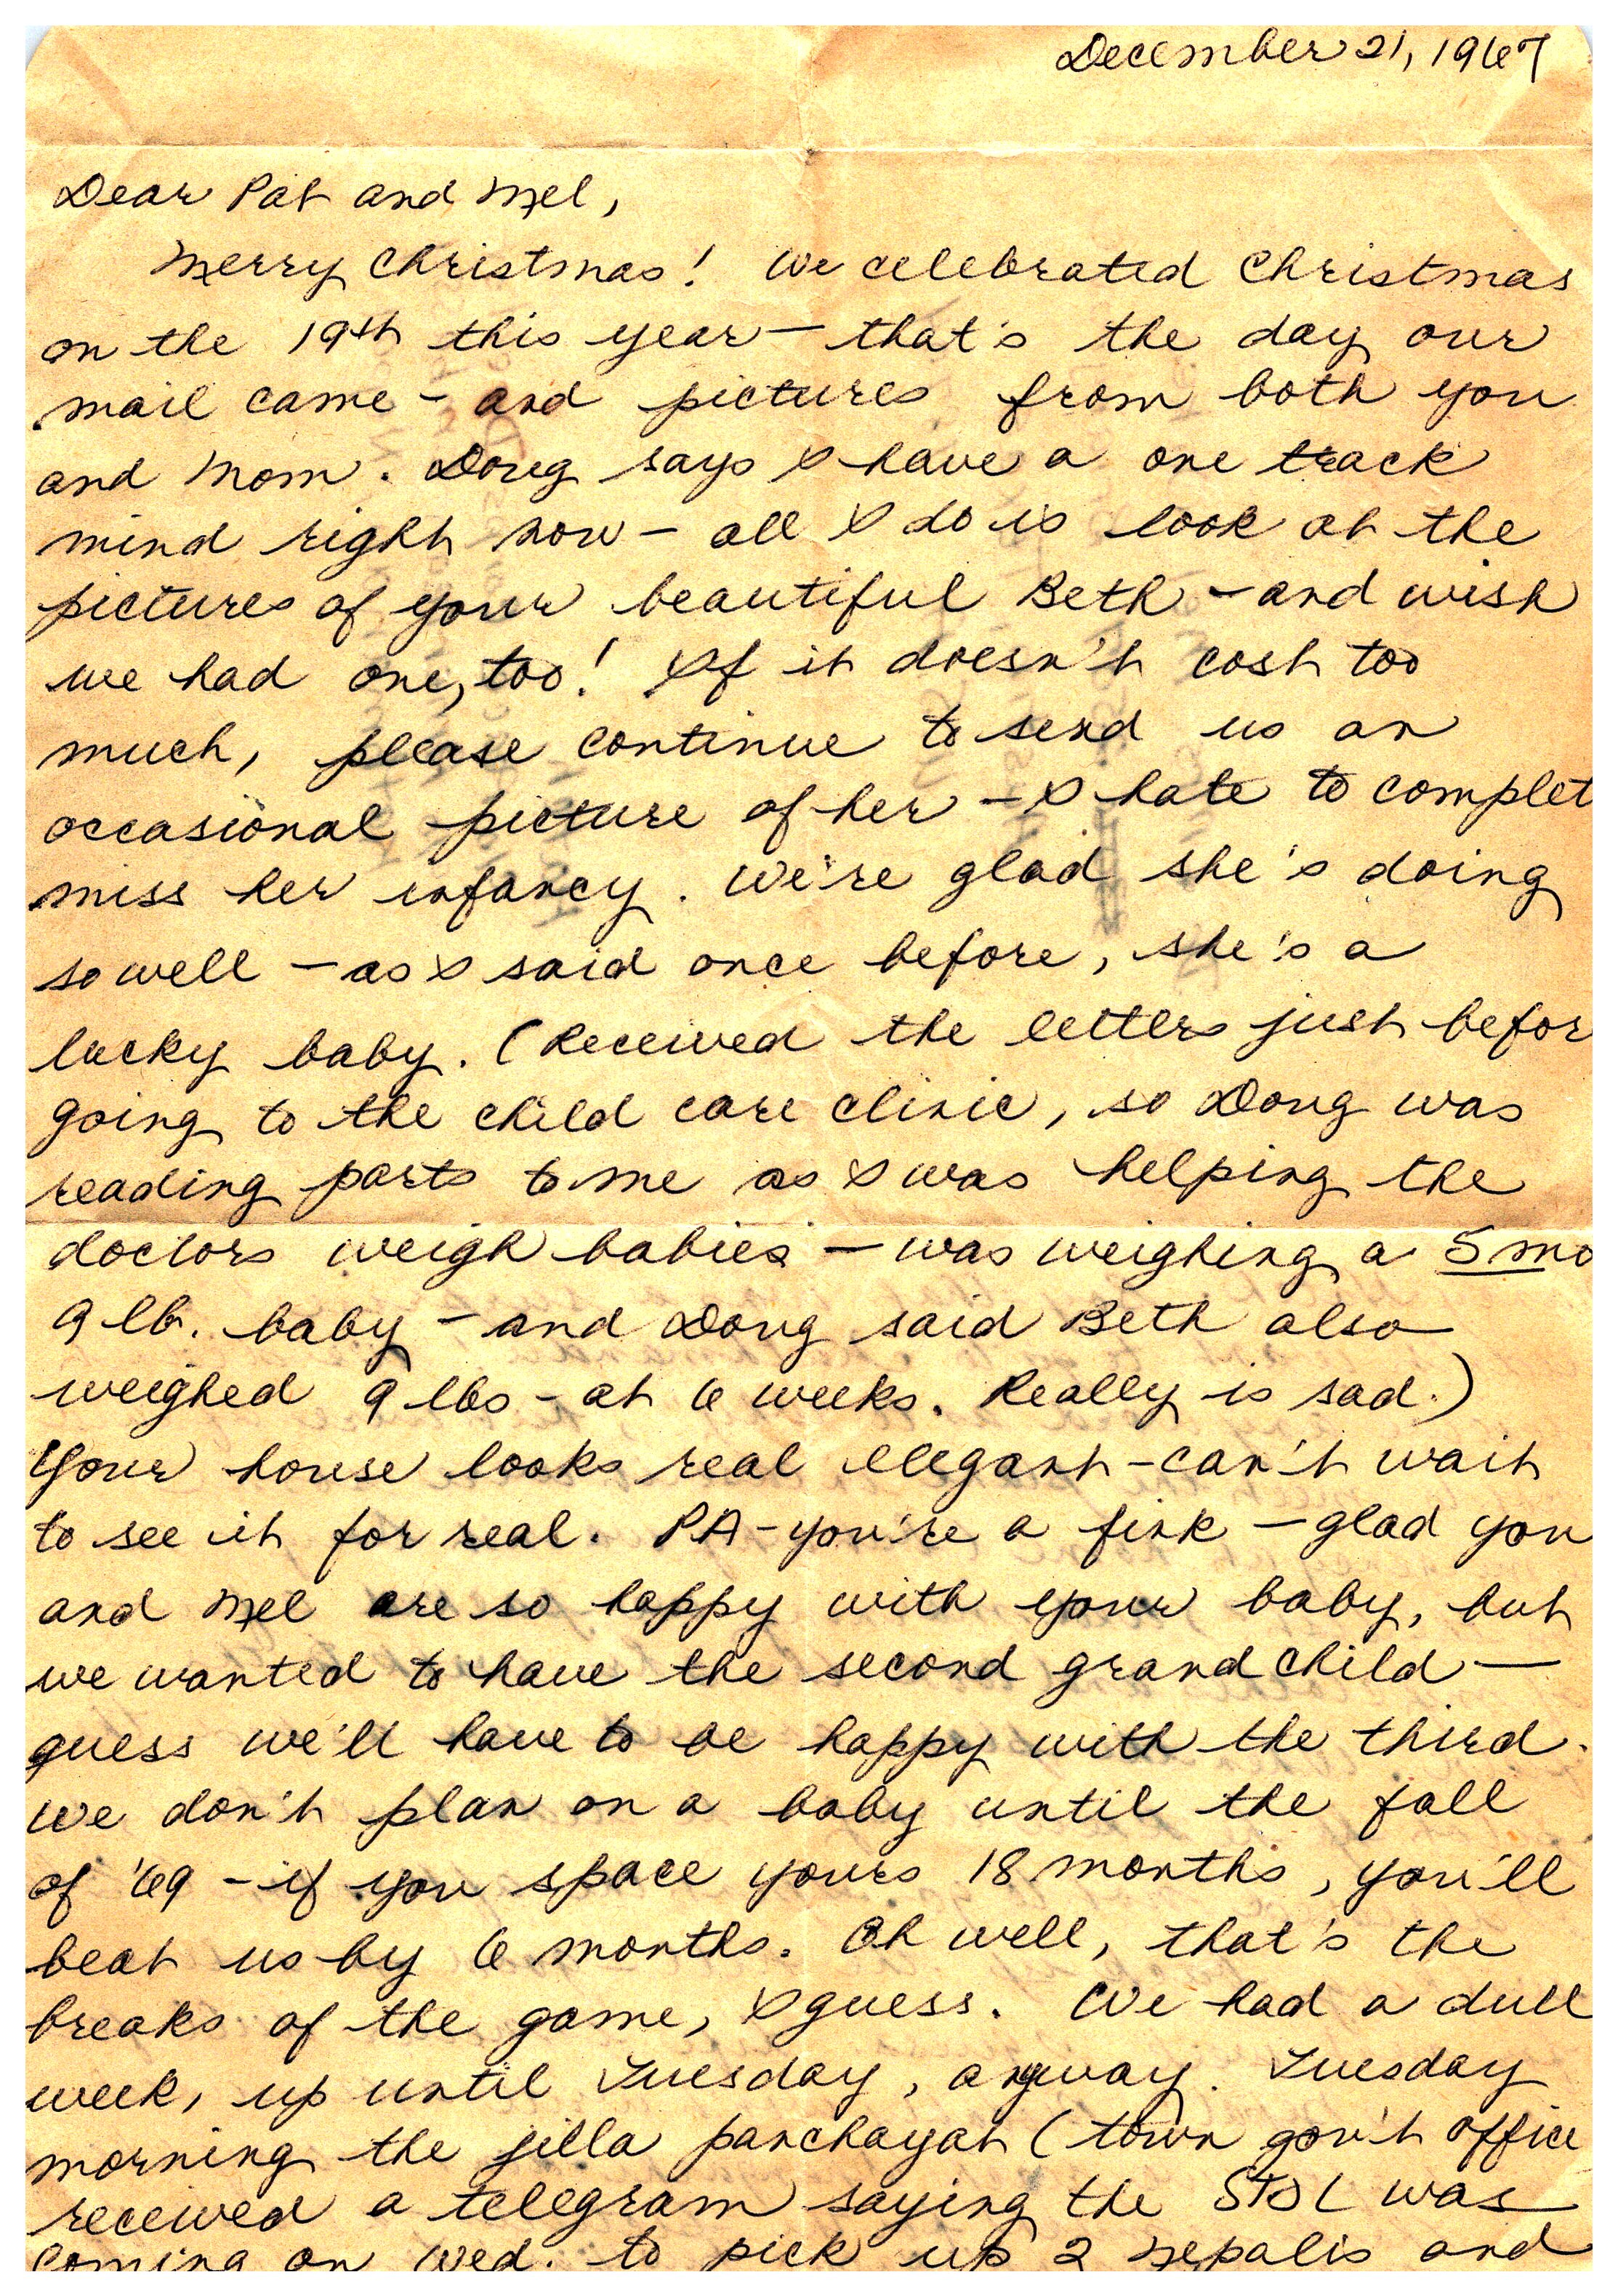 December 21, 1967
Dear Pat and Mel,
Merry Christmas! We celebrated Christmas
on the 19th this year — that's the day our
mail came - and pictures from both you
and Mom. Doug says I have a one track
mind right now - all I do is look at the
pictures of your beautiful Beth - and wish
we had one, too! If it doesn't cost too
much, please continue to send us an
occasional picture of her - I hate to complet
miss her infancy. We're glad she's doing
so well - as I said once before, she's a
lucky baby. (Received the letters just befor
going to the child care clinic, so Doug was
reading parts to me as I was helping the
doctors weigh babies - was weighing a 5 mo
9 lb. baby - and Doug said Beth also
weighed 9 lbs - at 6 weeks. Really is sad.)
Your house looks real elegant - can't wait
to see it for real. PA - you're a fink - glad you
and Mel are so happy with your baby, but
we wanted to have the second grandchild —
guess we'll have to be happy with the third.
We don't plan on a baby until the fall
of '69 - if you space yours 18 months, you'll
beat us by 6 months. Oh well, that's the
breaks of the game, I guess. We had a dull
week, up until Tuesday, anyway. Tuesday
morning the jilla panchayat (town gov't office
received a telegram saying the STOL was
coming on Wed. to pick up 2 Nepalis and